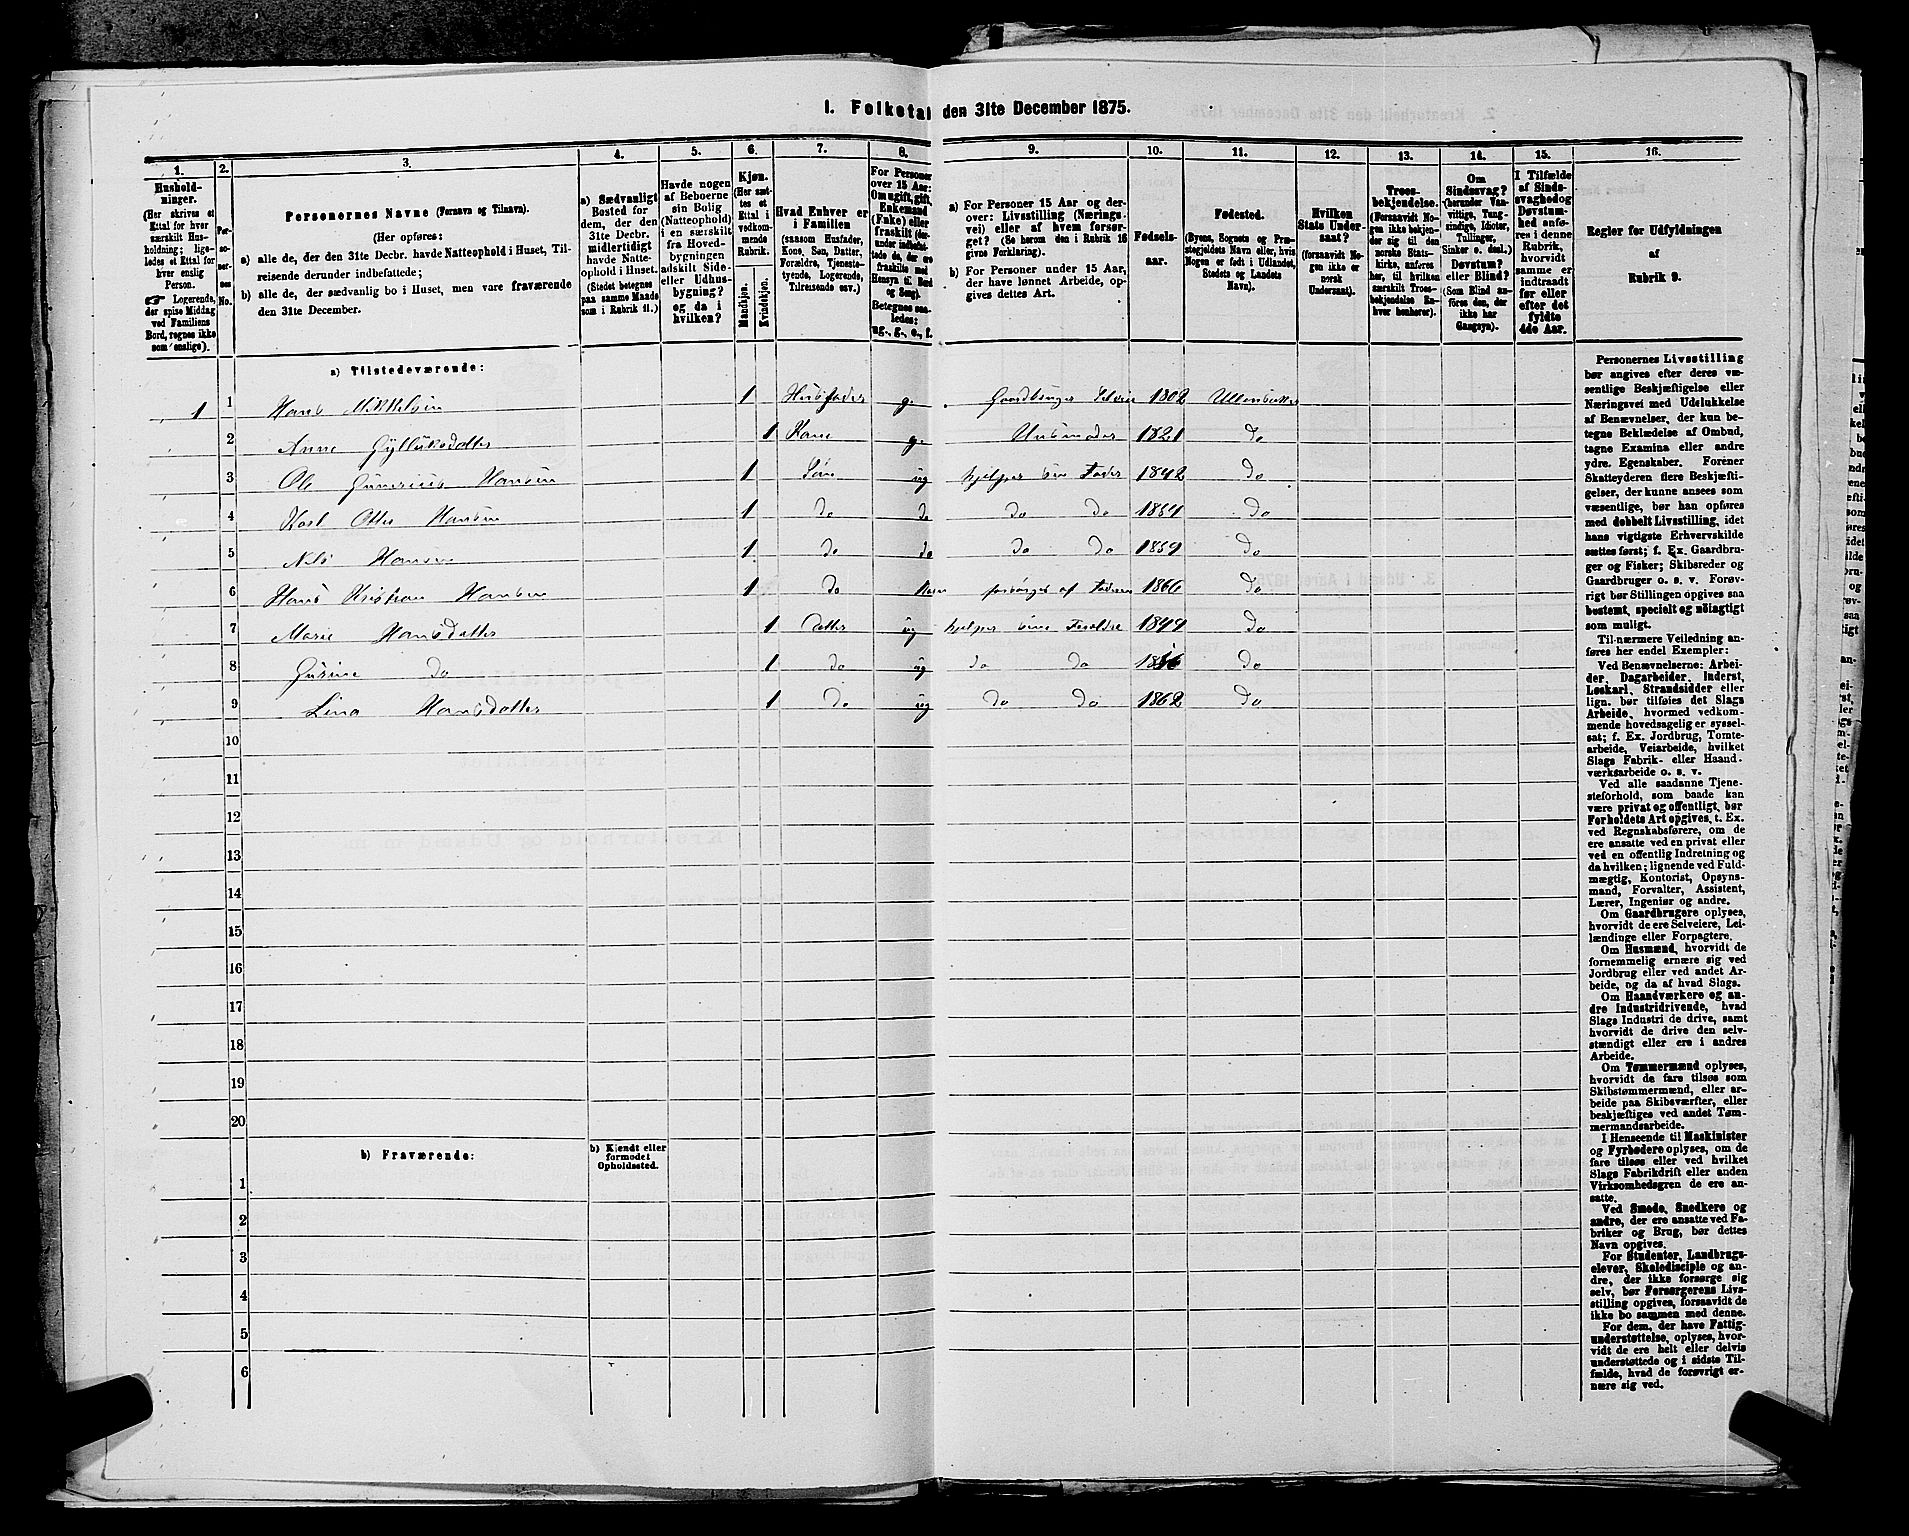 I. Folketal den 31te December 1875.
1. 2. 3. 4. 5. 6. 7. 8. 9. 10. 11. 12. 13. 14. 15. 16.
Hushold-
ninger.
(Her skrives et
Ettal for hver
særskilt Hus-
holdning; lige-
ledes et Ettal for
hver enslig
Person.
☞ Logerende,
der spise Middag
ved Familiens
Bord, regnes ikke
som enslige).
Per-
so-
ner-
nes
No.
Personernes Navne (Fornavn og Tilnavn).
(Her opføres:
a) alle de, der den 31te Decbr. havde Natteophold i Huset, Til-
reisende derunder indbefattede;
b) alle de, der sædvanlig bo i Huset, men vare fraværende
den 31te December.
a) Sædvanligt
Bosted for
dem, der den
31te Decbr.
midlertidigt
havde Natte-
ophold i Huset.
(Stedet betegnes
paa samme Maade
som i Rubrik 11.)
Havde nogen
af Beboerne
sin Bolig
(Natteophold)
i en særskilt
fra Hoved-
bygningen
adskilt Side-
eller Udhus-
bygning?
og da i
hvilken?
Kjøn.
(Her sæt-
tes et
Ettal i
vedkom-
mende
Rubrik.
Mandkjøn.
Kvindekjøn.
Hvad Enhver er
i Familien
(saasom Husfader,
Kone, Søn, Datter,
Forældre, Tjeneste-
tyende, Logerende,
Tilreisende osv.)
For Personer
over 15 Aar:
Om ugift, gift,
Enkemand
(Enke) eller
fraskilt (der-
under indbefat-
tede de, der ere
fraskilte med
Hensyn til Bord
og Seng).
Betegnes saa-
ledes:
ug., g., e., f.
a) For Personer 15 Aar og der-
over: Livsstilling (Nærings-
vei) eller af hvem forsør-
get? (Se herom den i Rubrik 16
givne Forklaring).
b) For Personer under 15 Aar,
der have lønnet Arbeide, op-
gives dettes Art.
Fødsels-
aar.
Fødested.
(Byens, Sognets og Præ-
stegjeldets Navn eller, hvis
Nogen er født i Udlandet,
Stedets og Landets
Navn).
Hvilken
Stats Under-
saat?
(forsaavidt No-
gen ikke er
norsk
Undersaat).
Troes-
bekjendelse.
(Forsaavidt No-
gen ikke bekjen-
der sig til den
norske Stats-
kirke, anføres
her, til hvilken
særskilt Troes-
bekjendelse En-
hver henhører).
Om
Sindssvag?
(herunder Van-
vittige, Tung-
sindige, Idioter,
Tullinger,
Sinker o. desl.)
Døvstum?
eller Blind?
(Som Blind an-
føres den, der
ikke har
Gangsyn).
I Tilfælde
af Sinds-
svaghed og
Døvstum-
hed anfø-
res i denne
Rubrik,
hvorvidt
samme er
indtraadt
før eller
efter det
fyldte
4de Aar.
Regler for Udfyldningen
af
Rubrik 9.
a) Tilstedeværende:
1 1 Hans Mikkelsen 1 Husfader g. Gaardbruger Selveier 1802
2 Anne 1 Kone g. Husmoder 1821 do
3 Ole Hansen 1 Søn ug hjelper sin Fader 1842 do
4 Karl Otto Hansen 1 do do do do 1854 do
5 Nils Hansen 1 do do do do 1859 do
6 Hans Kristian Hansen 1 do forsørges af Faderen 1866 do
7 Marie Hansdatter 1 Datter ug hjelper sine Foreldre 1849 do
8 Gurine do 1 do ug do do do
9 Lina Hansdatter 1 do ug do do 1862 do
10
11
12
13
14
15
16
17
18
19
20
b) Fraværende:
b) Kjendt eller
formodet
Opholdssted.
1
2
3
4
5
6
Personernes Livsstilling
bør angives efter deres væ-
sentlige Beskjæftigelse eller
Næringsvei med Udelukkelse
af Benævnelser, der kun be-
tegne Beklædelse af Ombud,
tagne Examina eller andre
ydre Egenskaber. Forener
Skatteyderen flere Beskjæfti-
gelser, der kunne ansees som
væsentlige, bør han opføres
med dobbelt Livsstilling, idet
hans vigtigste Erhvervskilde
sættes først; f. Ex. Gaardbru-
ger og Fisker; Skibsreder og
Gaardbruger o. s. v. Forøv-
rigt bør Stillingen opgives saa
bestemt, specielt og nøiagtigt
som muligt.
Til nærmere Veiledning an-
føres her endel Exempler:
Ved Benævnelserne: Arbei-
der, Dagarbeider, Inderst,
Løskarl, Strandsidder eller
lign. bør tilføies det Slags
Arbeide, hvormed vedkom-
mende hovedsagelig er syssel-
sat; f. Ex. Jordbrug, Tomte-
arbeide, Veiarbeide, hvilket
Slags Fabrik- eller Haand-
værksarbeide o. s. v.
Ved alle saadanne Tjene-
steforhold, som baade kan
være privat og offentligt, bør
Forholdets Art opgives, t. Ex.
ved Regnskabsførere, om de
ere ansatte ved en privat eller
ved en offentlig Indretning og
da hvilken; lignende ved Fuld-
mægtig, Kontorist, Opsyns-
mand, Forvalter, Assistent,
Lærer, Ingeniør og andre.
Om Gaardbrugere oplyses,
hvorvidt de ere Selveiere, Lei-
lændinge eller Forpagtere.
Om Husmænd, hvorvidt de
fornemmelig ernære sig ved
Jordbrug eller ved andet Ar-
beide, og da af hvad Slags.
Om Haandværkere og an-
dre Industridrivende, hvad
Slags Industri de drive, samt
hvorvidt de drive den selv-
stændigt eller ere i andres
Arbeide.
Om Tømmermænd oplyses,
hvorvidt de fare tilsøs som
Skibstømmermænd, eller ar-
beide paa Skibsværfter, eller
beskjæftiges ved andet Tøm-
mermandsarbeide.
I Henseende til Maskinister
og Fyrbødere oplyses, om de
fare tilsøs eller ved hvilket
Slags Fabrikdrift eller anden
Virksomhedsgren de ere an-
satte.
Ved Smede, Snedkere og
andre, der ere ansatte ved Fa-
briker og Brug, bør dettes
Navn opgives.
For Studenter, Landbrugs-
elever, Skoledisciple og an-
dre, der ikke forsørge sig
selv, bør Forsørgerens Livs-
stilling opgives, forsaavidt de
ikke bo sammen med denne.
For dem, der have Fattig-
understøttelse, oplyses, hvor-
vidt de ere helt eller delvis
understøttede og i sidste Til-
fælde, hvad de forøvrigt er-
nære sig ved.